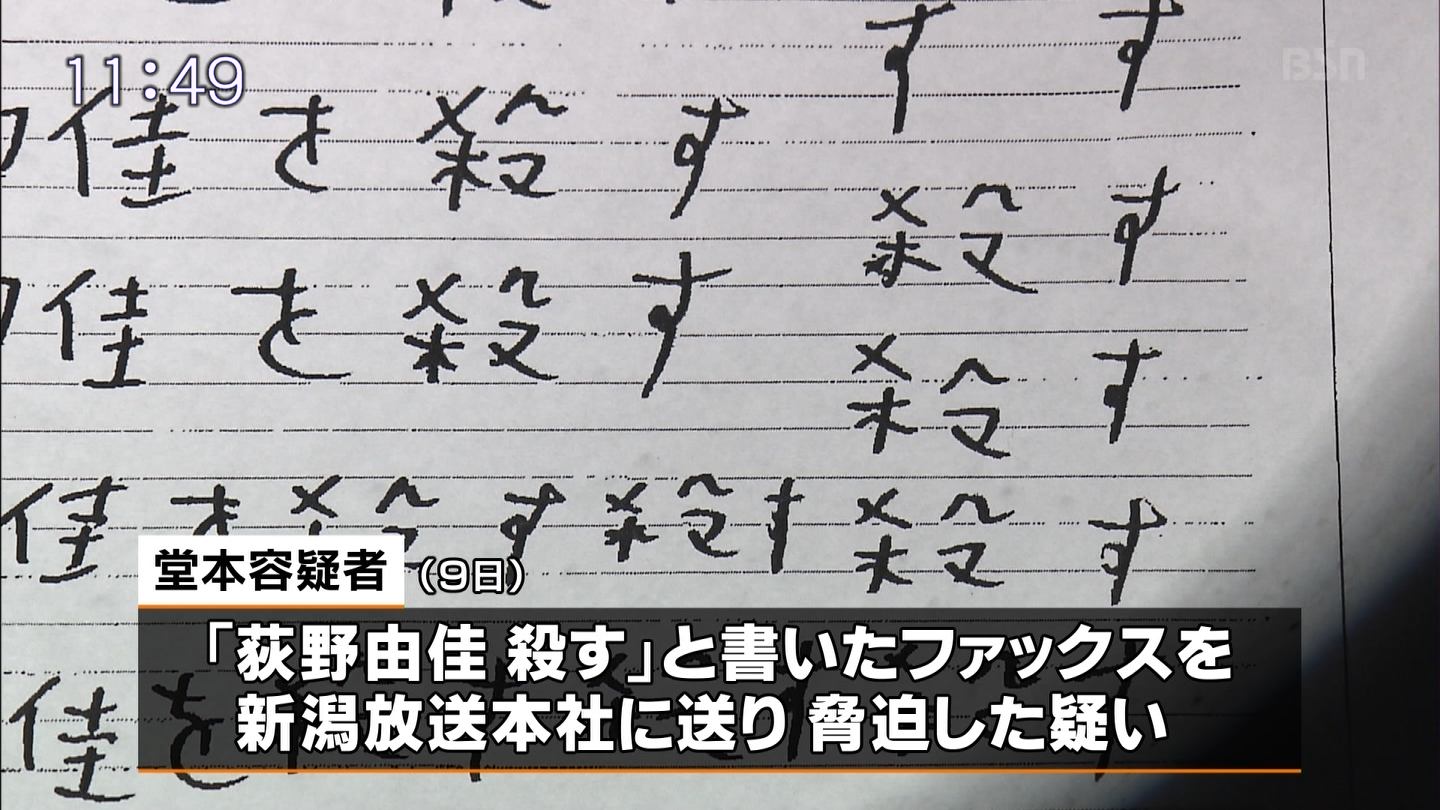 11:49
BSN
す す
佳を殺す
殺す
佳を殺す
殺す
佳を殺す殺す殺す
堂本容疑者 (9日)
「荻野由佳 殺す」と書いたファックスを
新潟放送本社に送り 脅迫した疑い
佳を